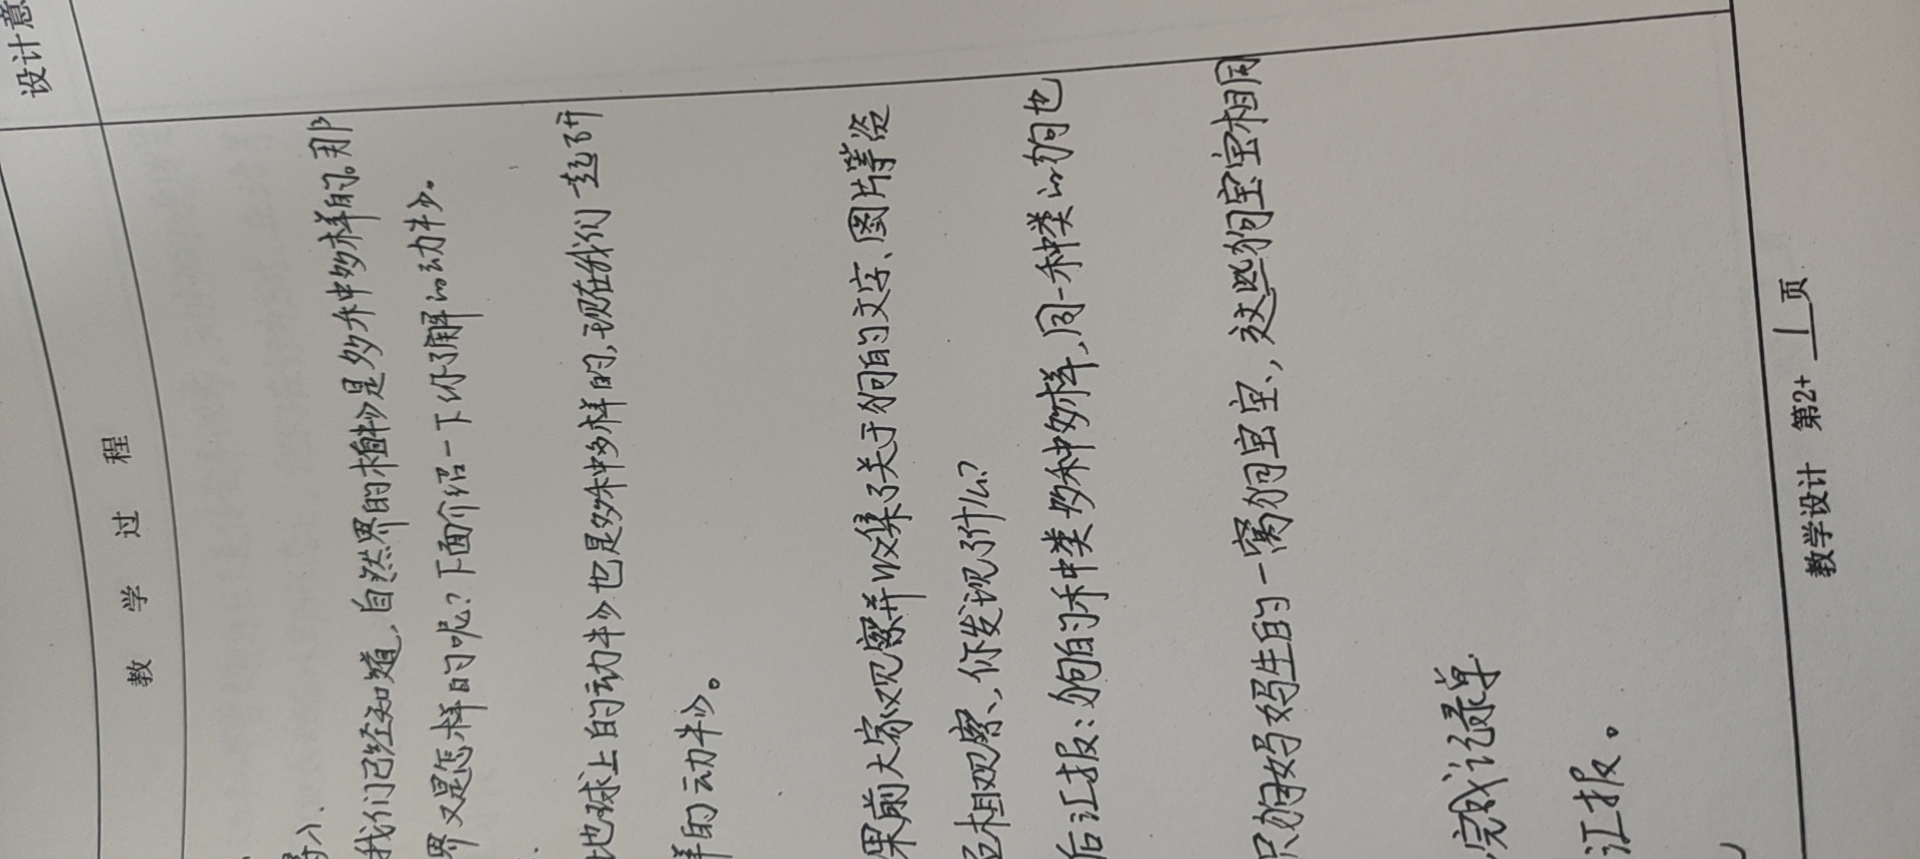 设计意
教 学 过 程
导入、
我们已经知道,自然界的植物是多种多样的。那
界又是怎样的呢?下面介绍一下你了解的动物。
地球上的动物也是多种多样的,现在我们一起研
样的动物。
课前大家观察并收集了关于狗的文字、图片等资
互相观察、你发现了什么?
后汇报:狗的种类多种多样,同一种类的狗也
只狗妈妈生的一窝狗宝宝,这些狗宝宝相同
完成记录单
汇报。
教学设计 第2+1页